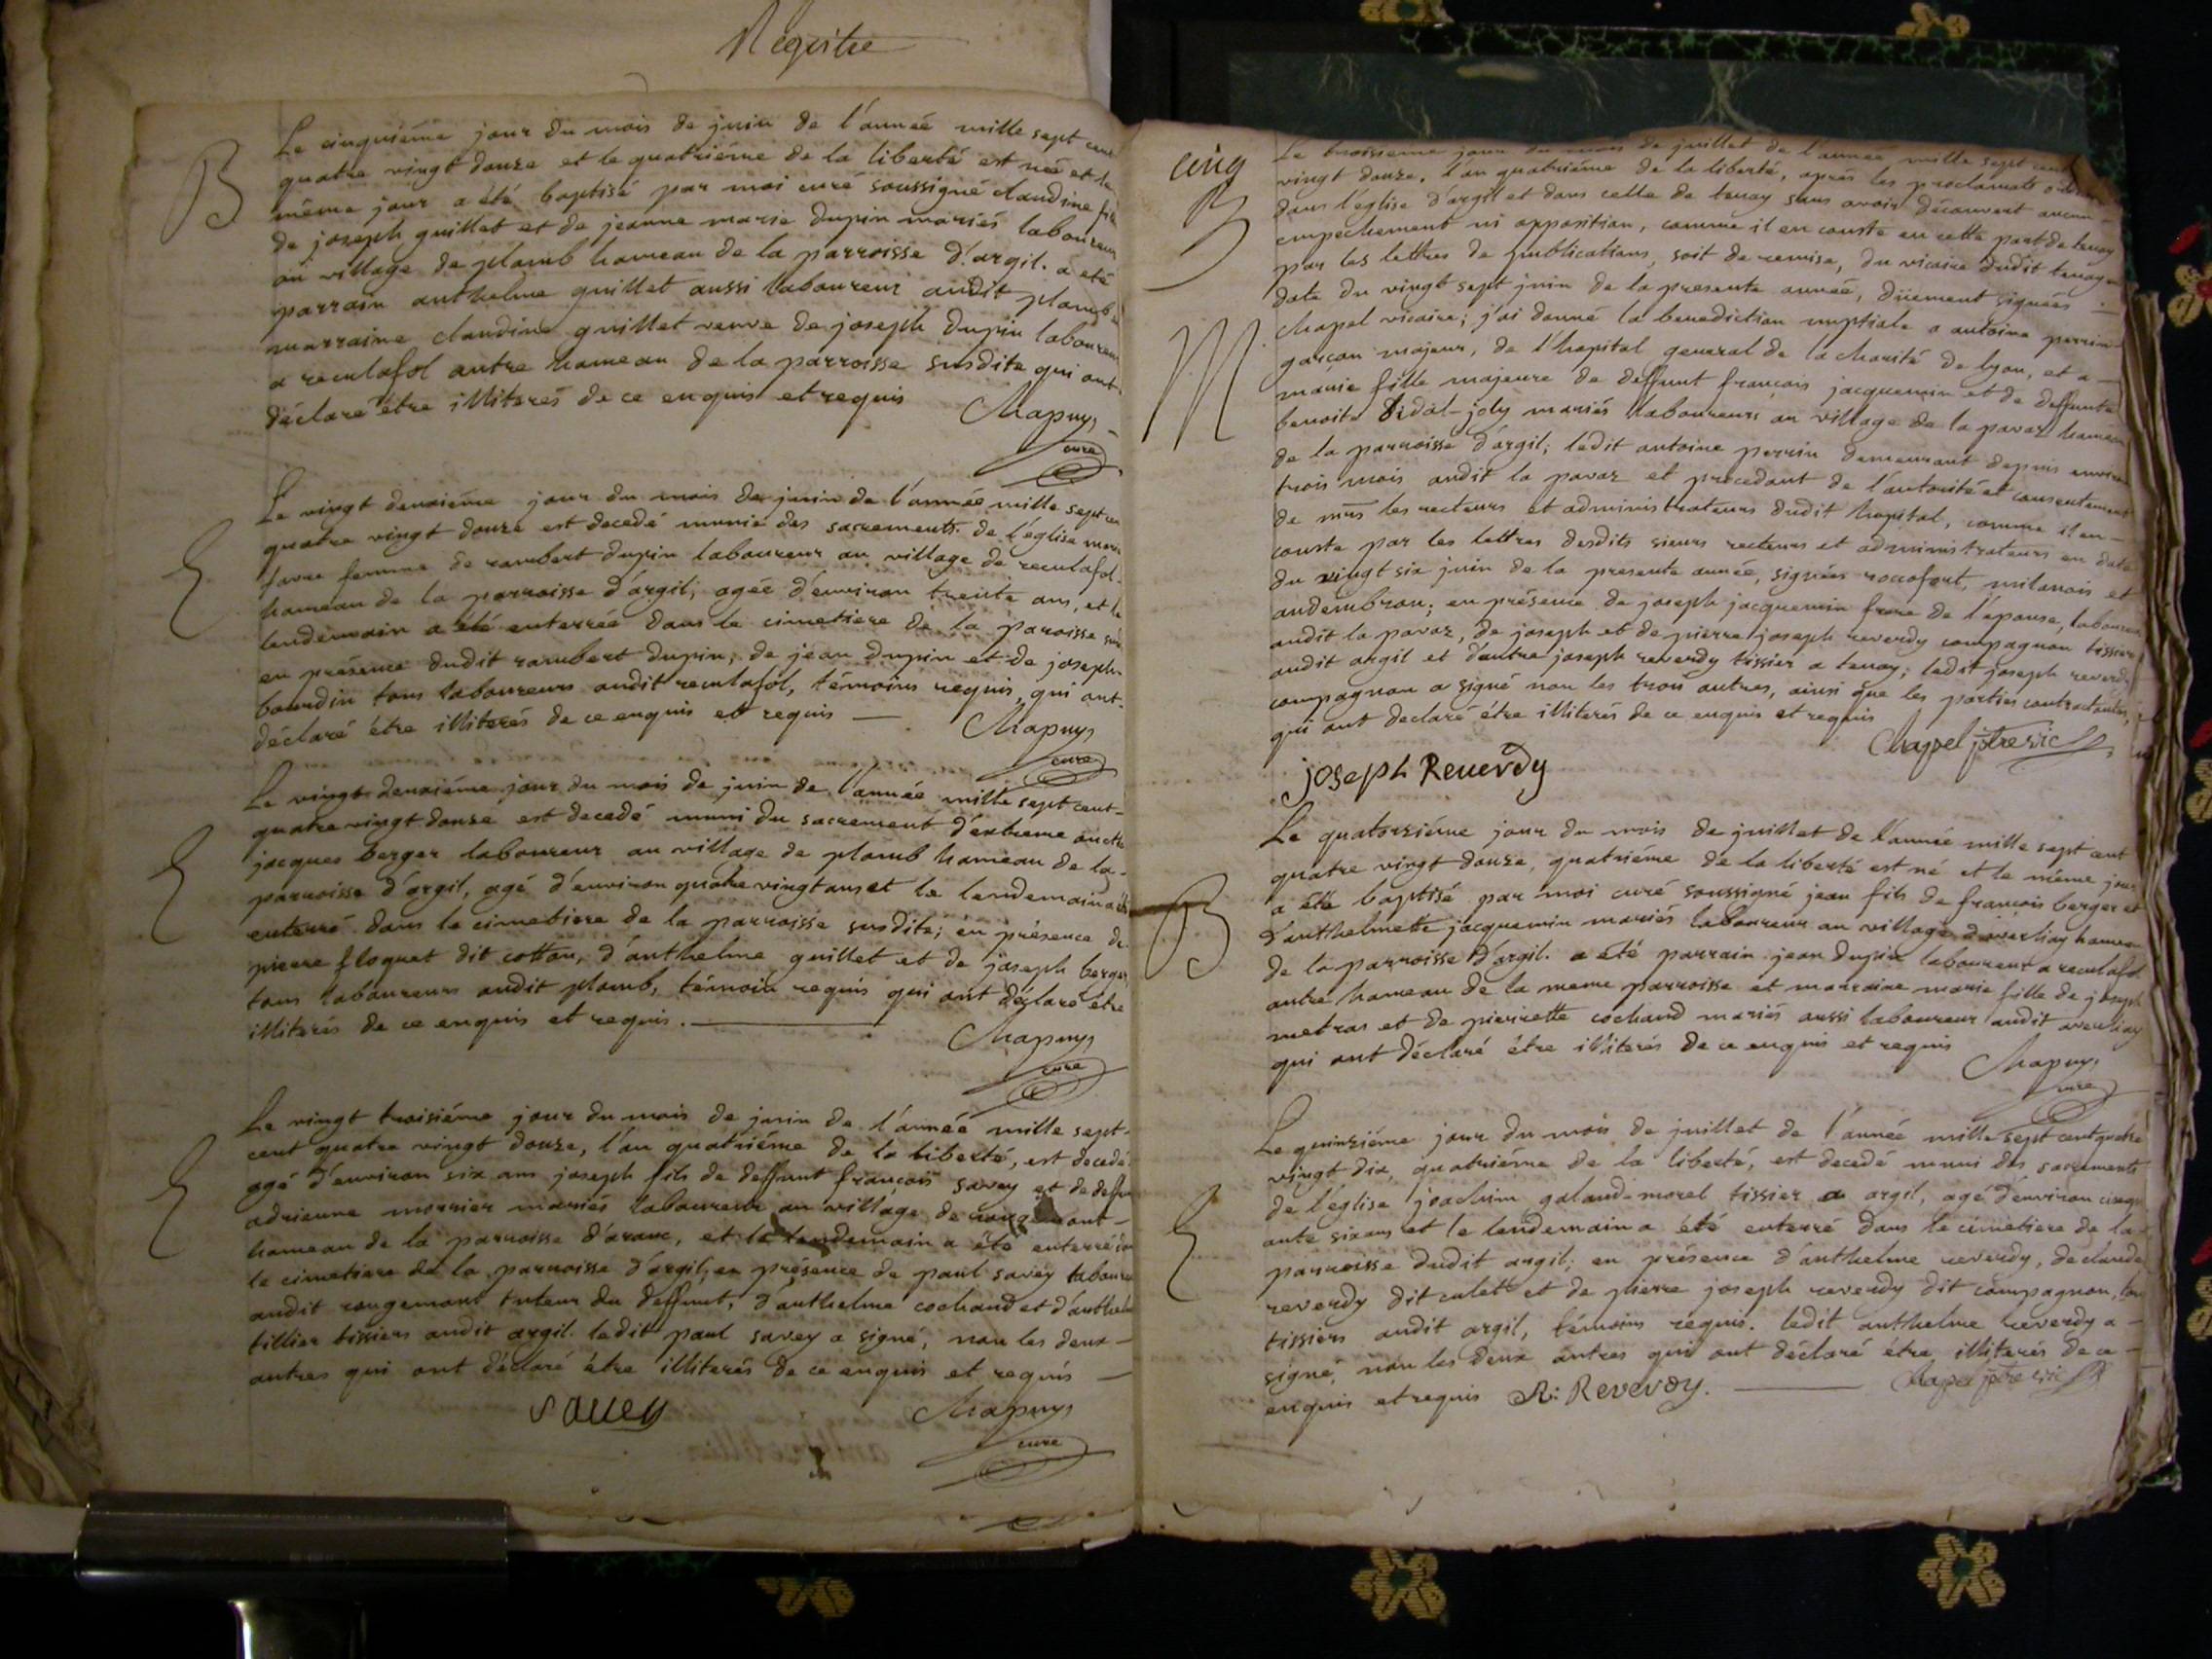 Registre
B
Le cinquiéme jour du mois de juin de l'année mille sept cent
quatre vingt douze et le quatriéme de la liberté est née et le
même jour a été baptisé par moi curé soussigné claudine fille
de joseph guillet et de jeanne marie dupin mariés laboureurs
au village de plomb hameau de la parroisse d'argil. a eté
parrain anthelme guillet aussi laboureur audit plomb
marraine claudine guillet veuve de joseph dupin laboureur
a reculafol autre hameau de la parroisse susdite qui ont
déclaré être illiterés de ce enquis et requis
Chapuy
curé
Le vingt deuxiéme jour du mois de juin de l'année mille sept cen
quatre vingt douze est decedé munie des sacrements de l'église marie
favre femme de rambert dupin laboureur au village de reculafol
hameau de la parroisse d'argil, agée d'environ trente ans, et le
lendemain a été enterrée dans le cimetiere de la paroisse
en présence dudit rambert dupin, de jean dupin et de joseph
bourdin tous laboureurs audit reculafol, témoins requis, qui ont
déclaré être illiterés de ce enquis et requis —
Chapuy
curé
Le vingt deuxiéme jour du mois de juin de l'année mille sept cent
quatre vingt douze est decedé muni du sacrement d'extreme onction
jacques berger laboureur au village de plomb hameau de la
parroisse d'argil, agé d'environ quatre vingt ans et le lendemain a été
enterré dans le cimetiere de la parroisse susdite; en présence de
pierre floquet dit cottou, d'anthelme guillet et de joseph berger
tous laboureurs audit plomb, témoins requis qui ont déclaré être
illiterés de ce enquis et requis. —
Chapuy
curé
Le vingt troisiéme jour du mois de juin de l'année mille sept
cent quatre vingt douze, l'an quatriéme de la liberté, est decedé
agé d'environ six ans joseph fils de deffunt françois savey et de deffun
adrienne mornier mariés laboureurs au village de rougemont
hameau de la parroisse d'aranc, et le lendemain a été enterré dans
le cimetiere de la parroisse d'argil; en présence de paul savey laboureur
audit rougemont tuteur du deffunt, d'anthelme cochand et d'anthelme
tillier tissiers audit argil. ledit paul savey a signé, non les deux
autres qui ont déclaré être illiterés de ce enquis et requis —
Savey
Chapuy
curé
cinq
Le troisieme jour du mois de juillet de l'année mille sept cent
vingt douze, l'an quatriéme de la liberté, après les proclamats
dans l'église d'argil et dans celle de tenay sans avoir découvert aucun
empechement ni opposition, comme il en conste en cette part de tenay
par les lettres de publications, soit de remise, du vicaire dudit tenay en
date du vingt sept juin de la presente année, düement signées
M
chapel vicaire; j'ai donné la benediction nuptiale a antoine perrin
garçon majeur, de l'hopital general de la charité de lyon, et a
marie fille majeure de deffunt françois jacquemin et de deffunte
benoite vidal-joly mariés laboureurs au village de la pavaz hameau
de la parroisse d'argil; ledit antoine perrin demeurant depuis environ
trois mois audit la pavaz et procedant de l'autorité et consentement
de mrs les recteurs et administrateurs dudit hopital, comme il en
conste par les lettres desdits sieurs recteurs et administrateurs en date
du vingt six juin de la presente année, signées rocofort, milanois et
audembron; en présence de joseph jacquemin frere de l'épouse, laboureur
audit la pavaz, de joseph et de pierre joseph reverdy compagnon tissiers
audit argil et d'autre joseph reverdy tissier a tenay; ledit joseph reverdy
compagnon a signé non les trois autres, ainsi que les parties contractantes,
qui ont declaré être illiterés de ce enquis et requis
Chapel ptre vic
joseph Reverdy
B
Le quatorziéme jour du mois de juillet de l'année mille sept cent
quatre vingt douze, quatriéme de la liberté est né et le même jour
a été baptisé par moi curé soussigné jean fils de françois berger et
d'anthelmette jacquemin mariés laboureurs au village d'averliay hameau
de la parroisse d'argil. a été parrain jean dupin laboureur a reculafol
autre hameau de la meme parroisse et marraine marie fille de joseph
metras et de pierrette cochand mariés aussi laboureur audit averliay
qui ont déclaré être illiterés de ce enquis et requis
Chapuy
curé
Le quinziéme jour du mois de juillet de l'année mille sept cent quatre
vingt dix, quatriéme de la liberté, est decedé muni des sacrements
de l'église joachim galand-morel tissier a argil, agé d'environ cinqu
ante six ans et le lendemain a été enterré dans le cimetiere de la
parroisse dudit argil; en présence d'anthelme reverdy, de claude
reverdy dit culet et de pierre joseph reverdy dit compagnon, tous
tissiers audit argil, témoins requis. ledit anthelme reverdy a
signé, non les deux autres qui ont déclaré être illiterés de ce
enquis et requis A: Reverdy. — Chapel ptre vic